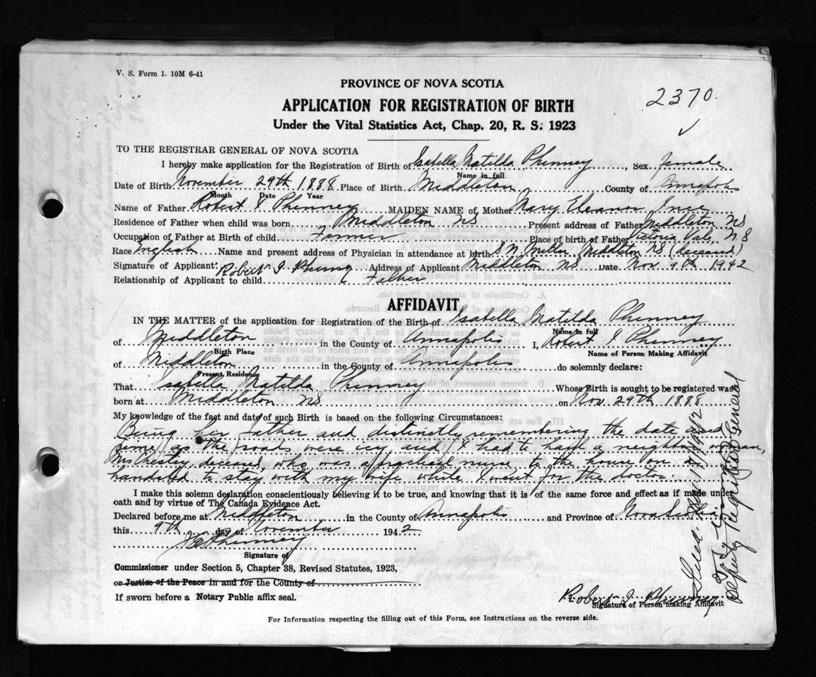 V. S. Form 1. 10M 6-41
PROVINCE OF NOVA SCOTIA
2370.
APPLICATION FOR REGISTRATION OF BIRTH
Under the Vital Statistics Act, Chap. 20, R. S. 1923
TO THE REGISTRAR GENERAL OF NOVA SCOTIA
I hereby make application for the Registration of Birth of Isabella Matilda Phinney, Sex female
Name in full
Date of Birth November 29th 1888 Place of Birth Middleton County of Annapolis
Month Date Year
Name of Father Robert I Phinney MAIDEN NAME of Mother Mary Eleanor
Residence of Father when child was born Middleton NS Present address of Father Middleton NS
Occupation of Father at Birth of child Farmer Place of birth of Father Victoria Vale NS
Race English Name and present address of Physician in attendance at birth S N Miller Middleton NS (deceased)
Signature of Applicant Robert I Phinney Address of Applicant Middleton NS Date Nov 9th 1942
Relationship of Applicant to child Father
AFFIDAVIT
IN THE MATTER of the application for Registration of the Birth of Isabella Matilda Phinney
Name in full
of Middleton in the County of Annapolis I, Robert I Phinney
Birth Place Name of Person Making Affidavit
of Middleton in the County of Annapolis do solemnly declare:
Present Residence
That Isabella Matilda Phinney Whose Birth is sought to be registered was
born at Middleton NS on Nov 29th 1888
My knowledge of the fact and date of such Birth is based on the following Circumstances:
Being her father and distinctly remembering the date and
time as the roads were icy and I had to have a neighbor woman,
Mrs deceased, who was a practical nurse, to the house on
to stay with my wife while I went for the doctor
I make this solemn declaration conscientiously believing it to be true, and knowing that it is of the same force and effect as if made under
oath and by virtue of The Canada Evidence Act.
Declared before me at Middleton in the County of Annapolis and Province of Nova Scotia
this 9th day of November 1942
Phinney
Signature of
Commissioner under Section 5, Chapter 38, Revised Statutes, 1923,
or Justice of the Peace in and for the County of
If sworn before a Notary Public affix seal.
Robert I. Phinney
Signature of Person making Affidavit
For Information respecting the filling out of this Form, see Instructions on the reverse side.
Deputy Registrar General